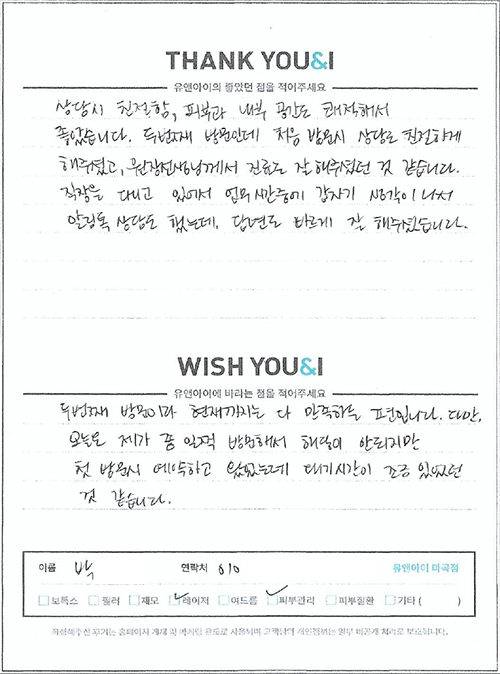 THANK YOU&I
유앤아이의 좋았던 점을 적어주세요
상담시 친절함, 피부과 내부 공간도 쾌적해서
좋았습니다. 두번째 방문인데 처음 방문시 상담도 친절하게
해주셨고, 원장선생님께서 진료도 잘 해주셨던 것 같습니다.
직장을 다니고 있어서 업무시간중에 갑자기 생각이 나서
알림톡 상담도 했는데, 답변도 빠르게 잘 해주셨습니다.
WISH YOU&I
유앤아이에 바라는 점을 적어주세요
두번째 방문이라 현재까지는 다 만족하는 편입니다. 다만,
오늘은 제가 좀 일찍 방문해서 해당이 안되지만
첫 방문시 예약하고 왔었는데 대기시간이 조금 있었던
것 같습니다.
이름 박 연락처 010 유앤아이 마곡점
보톡스 필러 제모 레이저 여드름 피부관리 피부질환 기타 ( )
작성해주신 후기는 홈페이지 게재 및 마케팅 용도로 사용되며 고객님의 개인정보는 일부 비공개 처리로 보호됩니다.